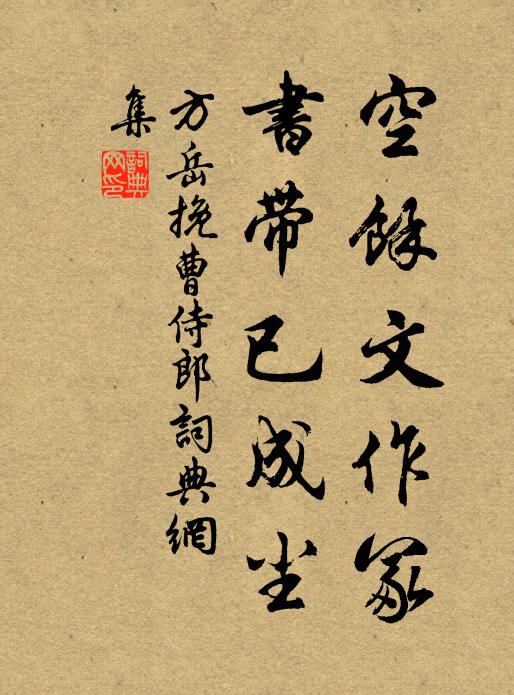 空餘文作冢
書帶已成尘
方岳挽曹侍郎詞典網
集
詞典
网印